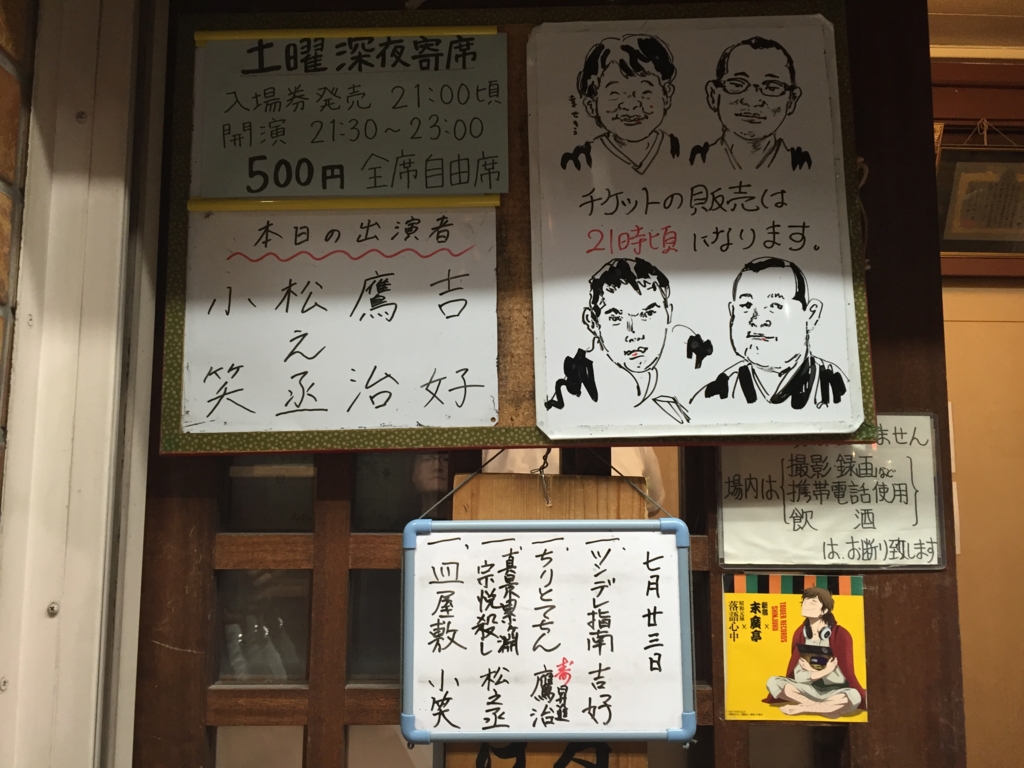 土曜深夜寄席
入場券発売 21:00頃
開演 21:30～23:00
500円 全席自由席
本日の出演者
吉好
鷹治
松之丞
小笑
チケットの販売は
21時頃になります。
ません
場内は
撮影 録画など
携帯電話使用
飲 酒
は、お断り致します
七月廿三日
一、ツンデレ指南 吉好
一、ちりとてちん 寿 昇進 鷹治
一、真景累ヶ淵 宗悦殺し 松之丞
一、皿屋敷 小笑
TOWER RECORDS
SHINJUKU
新宿
末廣亭
×
昭和元禄
落語心中
×